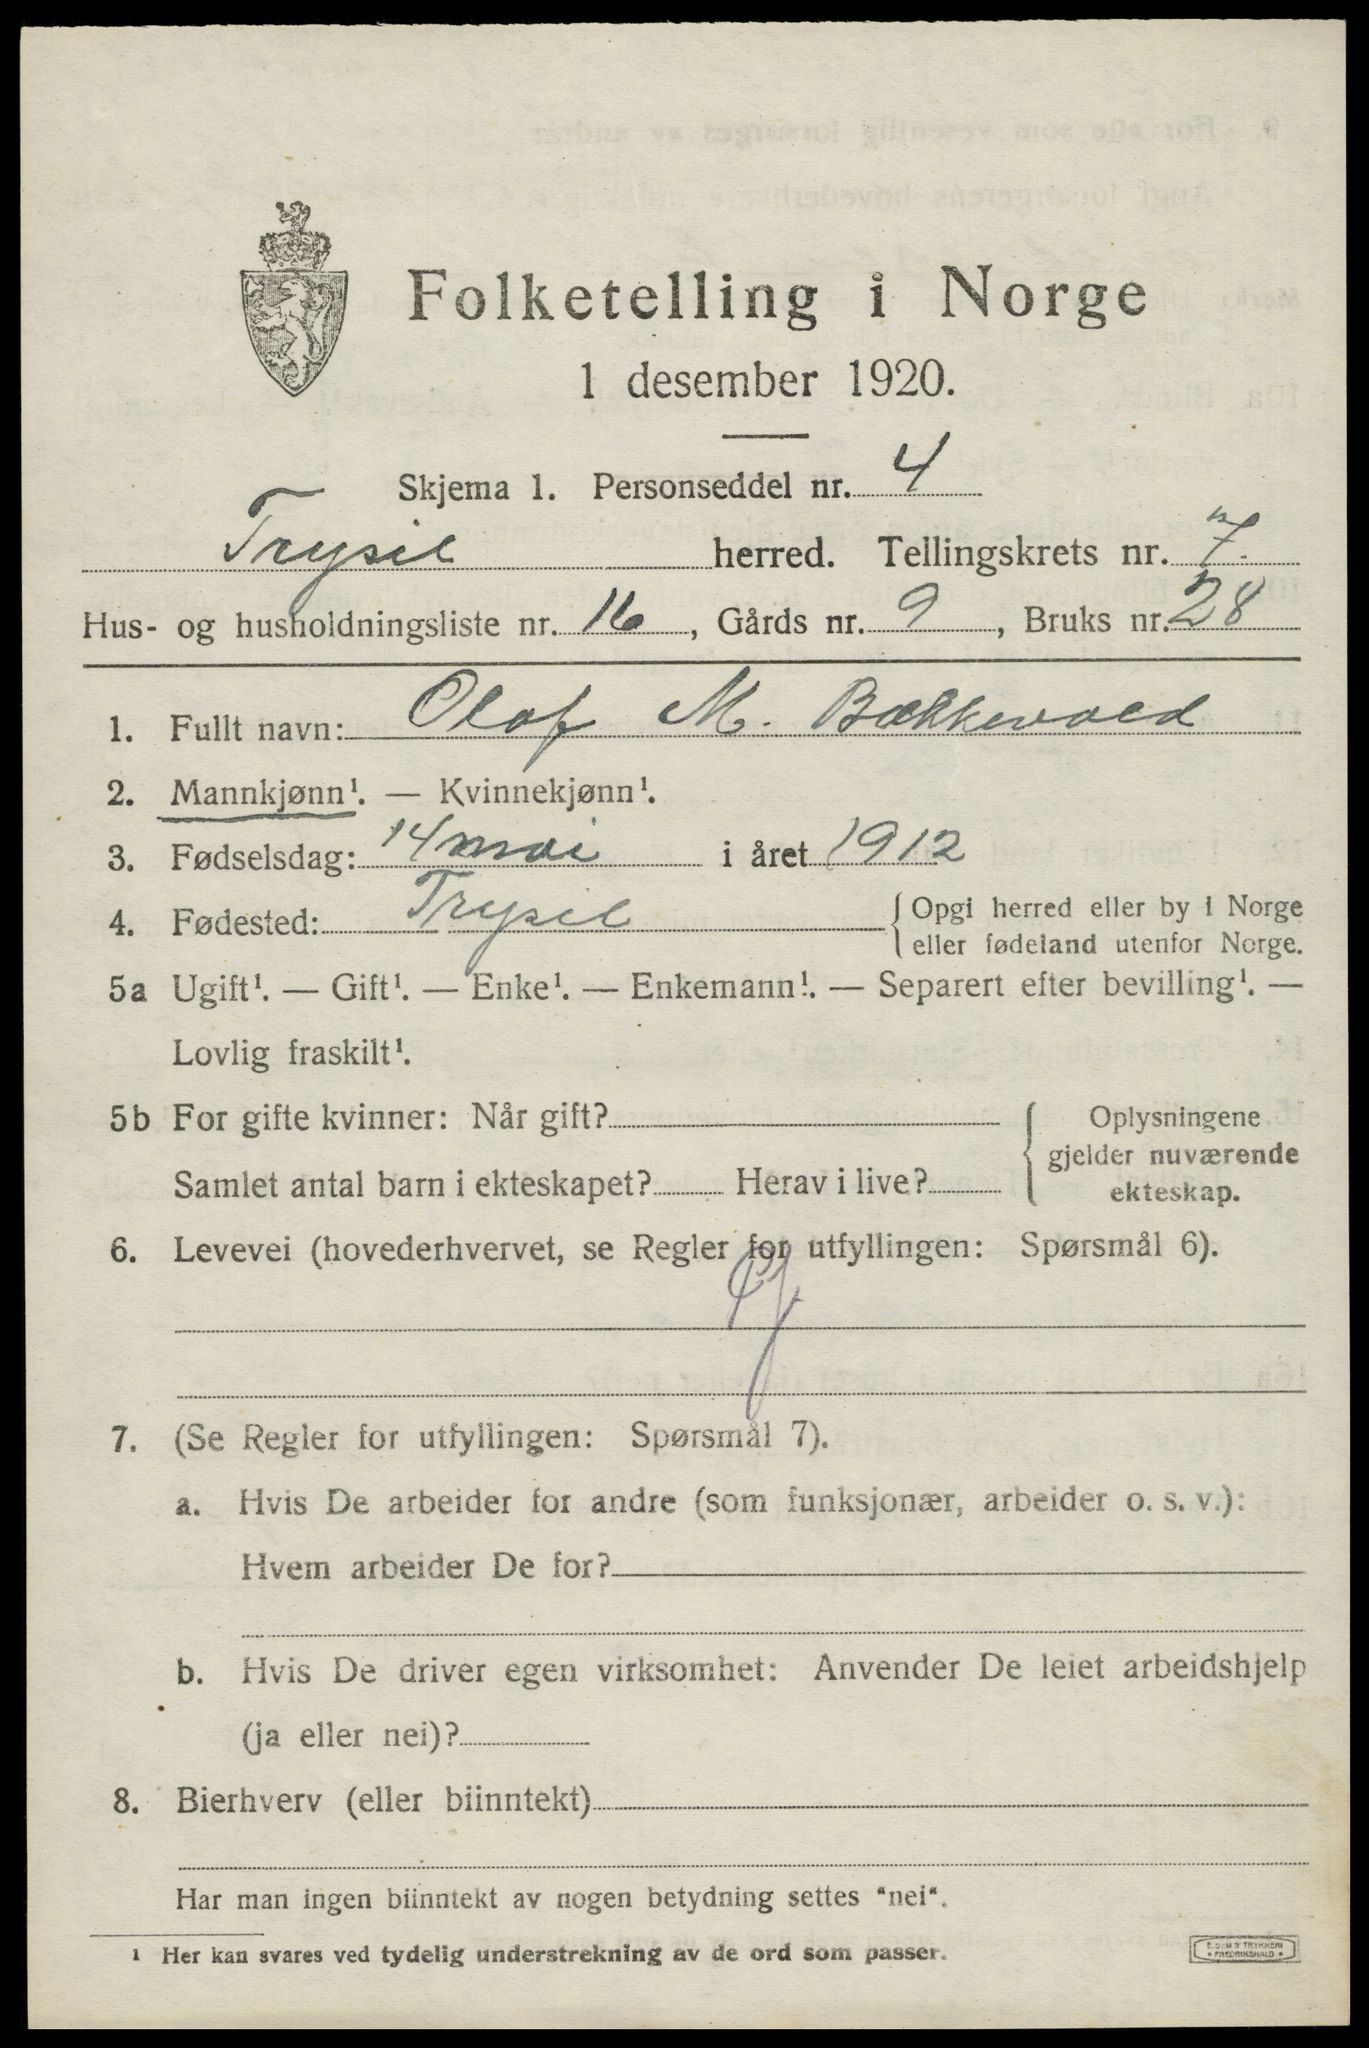 Folketelling i Norge
1 desember 1920.
Skjema 1. Personseddel nr. 4
Trysil herred. Tellingskrets nr. 7.
Hus- og husholdningsliste nr. 16, Gårds nr. 9, Bruks nr. 28
1. Fullt navn: Olaf M. Bækkevold
2. Mannkjønn¹. — Kvinnekjønn¹.
3. Fødselsdag: 14 mai i året 1912
4. Fødested: Trysil {Opgi herred eller by i Norge
eller fødeland utenfor Norge.
5a Ugift¹. — Gift¹. — Enke¹. — Enkemann¹. — Separert efter bevilling¹. —
Lovlig fraskilt¹.
5b For gifte kvinner: Når gift? { Oplysningene
gjelder nuværende
Samlet antal barn i ekteskapet? Herav i live? ekteskap.
6. Levevei (hovederhvervet, se Regler for utfyllingen: Spørsmål 6).
7. (Se Regler for utfyllingen: Spørsmål 7).
a. Hvis De arbeider for andre (som funksjonær, arbeider o. s. v.):
Hvem arbeider De for?
b. Hvis De driver egen virksomhet: Anvender De leiet arbeidshjelp
(ja eller nei)?
8. Bierhverv (eller biinntekt)
Har man ingen biinntekt av nogen betydning settes "nei".
¹ Her kan svares ved tydelig understrekning av de ord som passer.
TRYKKERI
FREDRIKSHALD